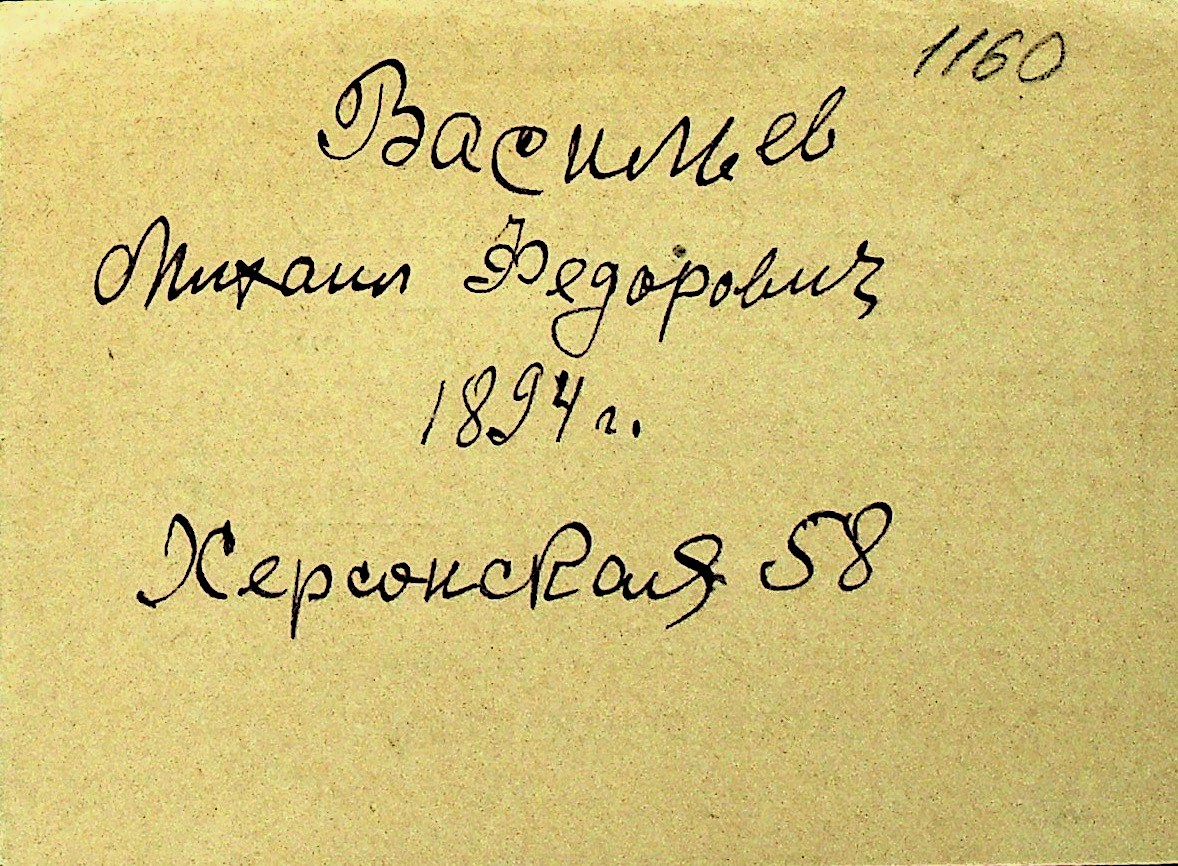 1160
Васильев
Михаил Федорович
1894 г.
Херсонская 58